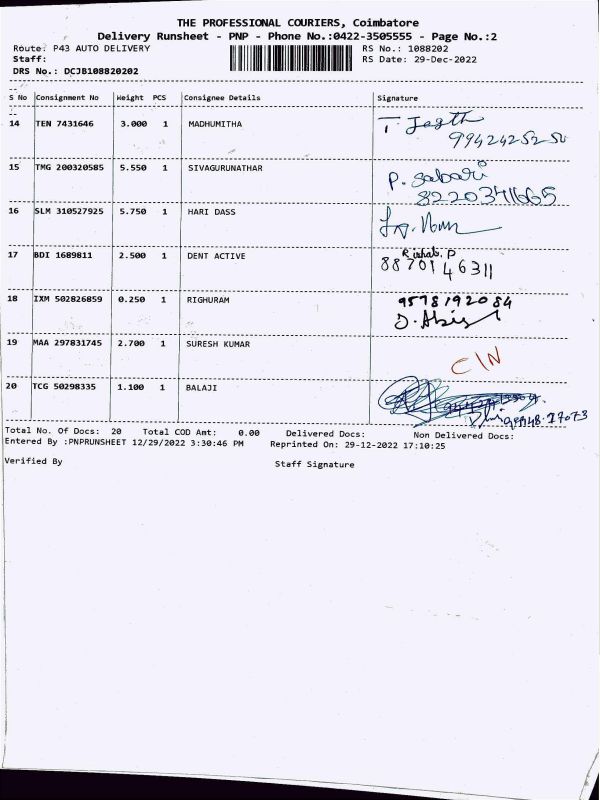 THE PROFESSIONAL COURIERS, Coimbatore
Delivery Runsheet - PNP - Phone No.:0422-3505555 - Page No.:2
Route: P43 AUTO DELIVERY RS No.: 1088202
Staff: RS Date: 29-Dec-2022
DRS No.: DCJB108820202
S No Consignment No Weight PCS Consignee Details Signature
14 TEN 7431646 3.000 1 MADHUMITHA
15 TMG 200320585 5.550 1 SIVAGURUNATHAR P. Sabari
8220371665
16 SLM 310527925 5.750 1 HARI DASS
17 BDI 1689811 2.500 1 DENT ACTIVE Rishab. P
8870146311
18 IXM 502826859 0.250 1 RIGHURAM 9578192084
19 MAA 297831745 2.700 1 SURESH KUMAR C/N
20 TCG 50298335 1.100 1 BALAJI
Total No. Of Docs: 20 Total COD Amt: 0.00 Delivered Docs: Non Delivered Docs:
Entered By :PNPRUNSHEET 12/29/2022 3:30:46 PM Reprinted On: 29-12-2022 17:10:25
Verified By Staff Signature